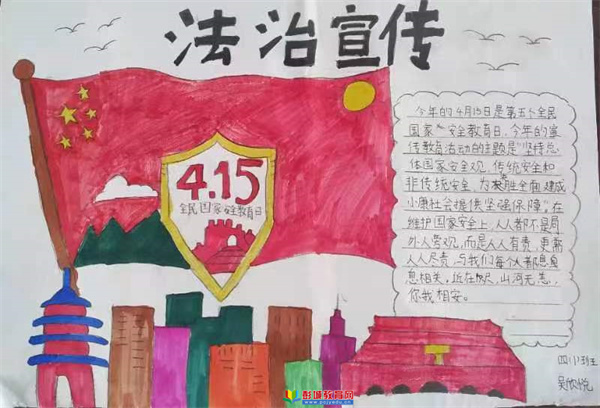 法治宣传
4.15
全民国家安全教育日
今年的4月15日是第五个全民
国家"安全教育日，今年的宣
传教育活动的主题是"坚持总
体国家安全观，传统安全和
非传统安全，为决胜全面建成
小康社会提供坚强保障，在
维护国家安全上，人人都不是局
外人旁观，而是人人有责，更需
人人尽责，与我们每个人都息息
息相关，近在咫尺，山河无恙，
你我相安。
四(1)班
吴欣悦
彭城教育网